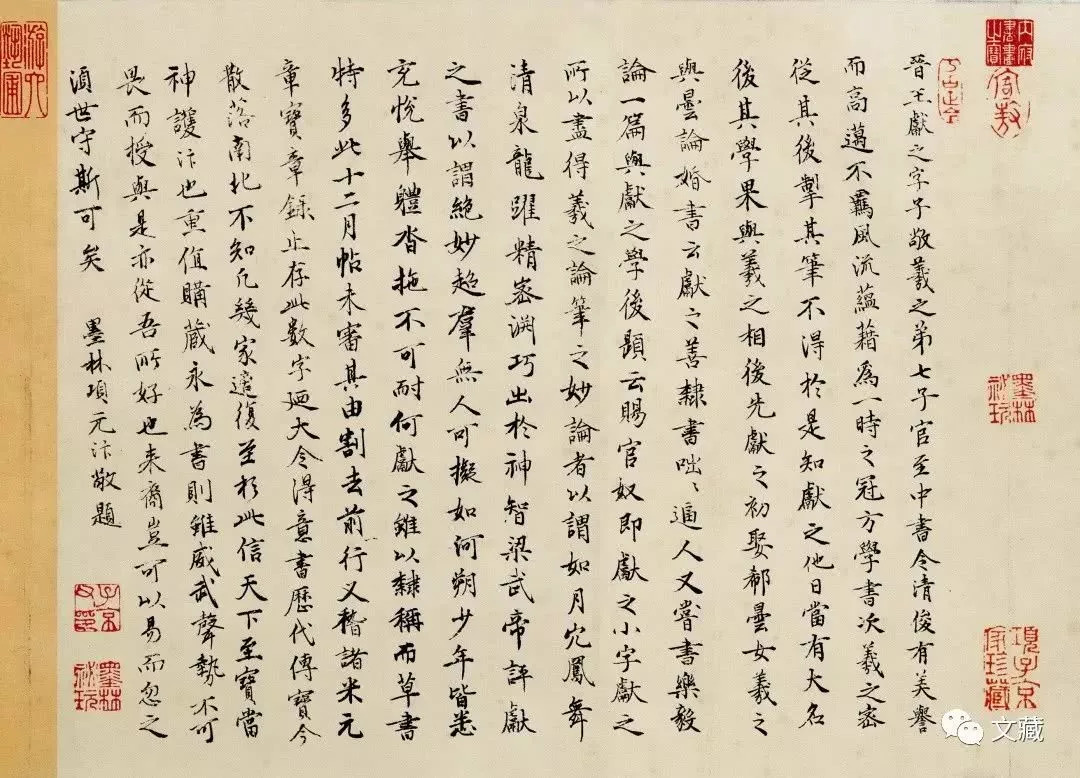 晉王獻之字子敬羲之弟七子官至中書令清俊有美譽
而高邁不羈風流蘊藉為一時之冠方學書次羲之密
從其後掣其筆不得於是知獻之他日當有大名
後其學果與羲之相後先獻之初娶郗曇女羲之
與曇論婚書云獻之善隸書咄咄逼人又嘗書樂毅
論一篇與獻之學後題云賜官奴即獻之小字獻之
所以盡得羲之論筆之妙論者以謂如月穴鳳舞
清泉龍躍精密淵巧出於神智梁武帝評獻
之書以謂絕妙超羣無人可擬如河朔少年皆悉
充悅舉體沓拖不可耐何獻之雖以隸稱而草書
特多此十二月帖未審其由割去前行又稽諸米元
章寶章錄止存此数字廼大令得意書歷代傳寶今
散落南北不知凡幾家適復至於此信天下至寶當
神護汴也重值購藏永為書則雖威武聲勢不可
畏而授與是亦從吾所好也来裔豈可以易而忽之
須世守斯可矣 墨林項元汴敬題
墨林祕玩
項子京家珍藏
子京父印
墨林祕玩
文藏